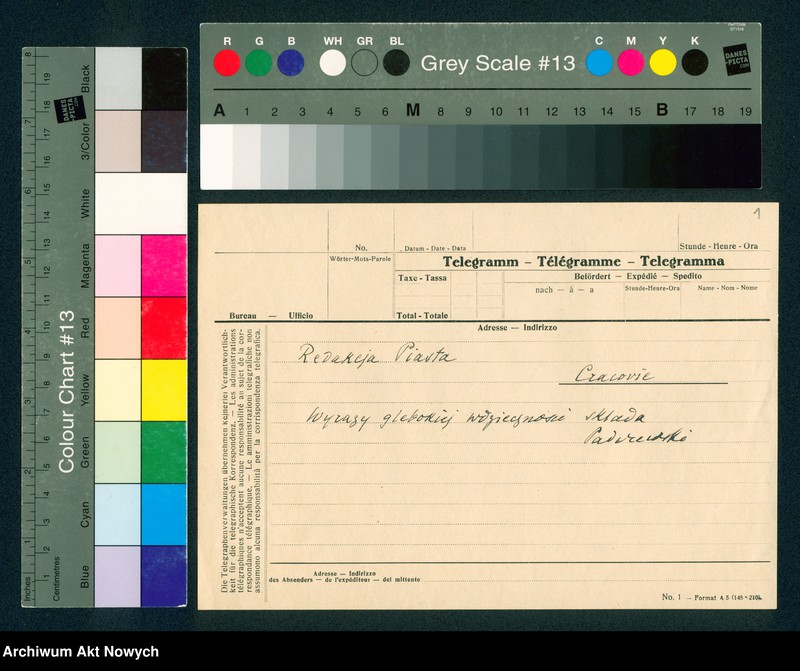 R G B WH GR BL Grey Scale #13 C M Y K DANES PICTA .COM
A 1 2 3 4 5 6 M 8 9 10 11 12 13 14 15 B 17 18 19
Colour Chart #13
DANES PICTA .COM
Black
3/Color
White
Magenta
Red
Yellow
Green
Cyan
Blue
Inches
Centimetres
1
No.
Datum - Date - Data
Stunde - Heure - Ora
Wörter-Mots-Parole
Telegramm — Télégramme — Telegramma
Taxe - Tassa
Befördert — Expédié — Spedito
nach — à — a
Stunde-Heure-Ora
Name - Nom - Nome
Bureau — Ufficio
Total - Totale
Adresse — Indirizzo
Redakcja Piasta
Cracovie
Wyrazy głębokiej wdzięczności składa
Paderewski
Die Telegraphenverwaltungen übernehmen keinerlei Verantwortlich-
keit für die telegraphische Korrespondenz. — Les administrations
télégraphiques n'acceptent aucune responsabilité au sujet de la cor-
respondance télégraphique. — Le amministrazioni telegrafiche non
assumono alcuna responsabilità per la corrispondenza telegrafica.
Adresse — Indirizzo
des Absenders — de l'expéditeur — del mittente
No. 1 — Format A 5 (148 × 210).
Archiwum Akt Nowych